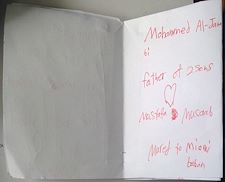 Mohammed Al-Jam
bi
father of 2 sons
Mustafa Musaab
Mared to Miami